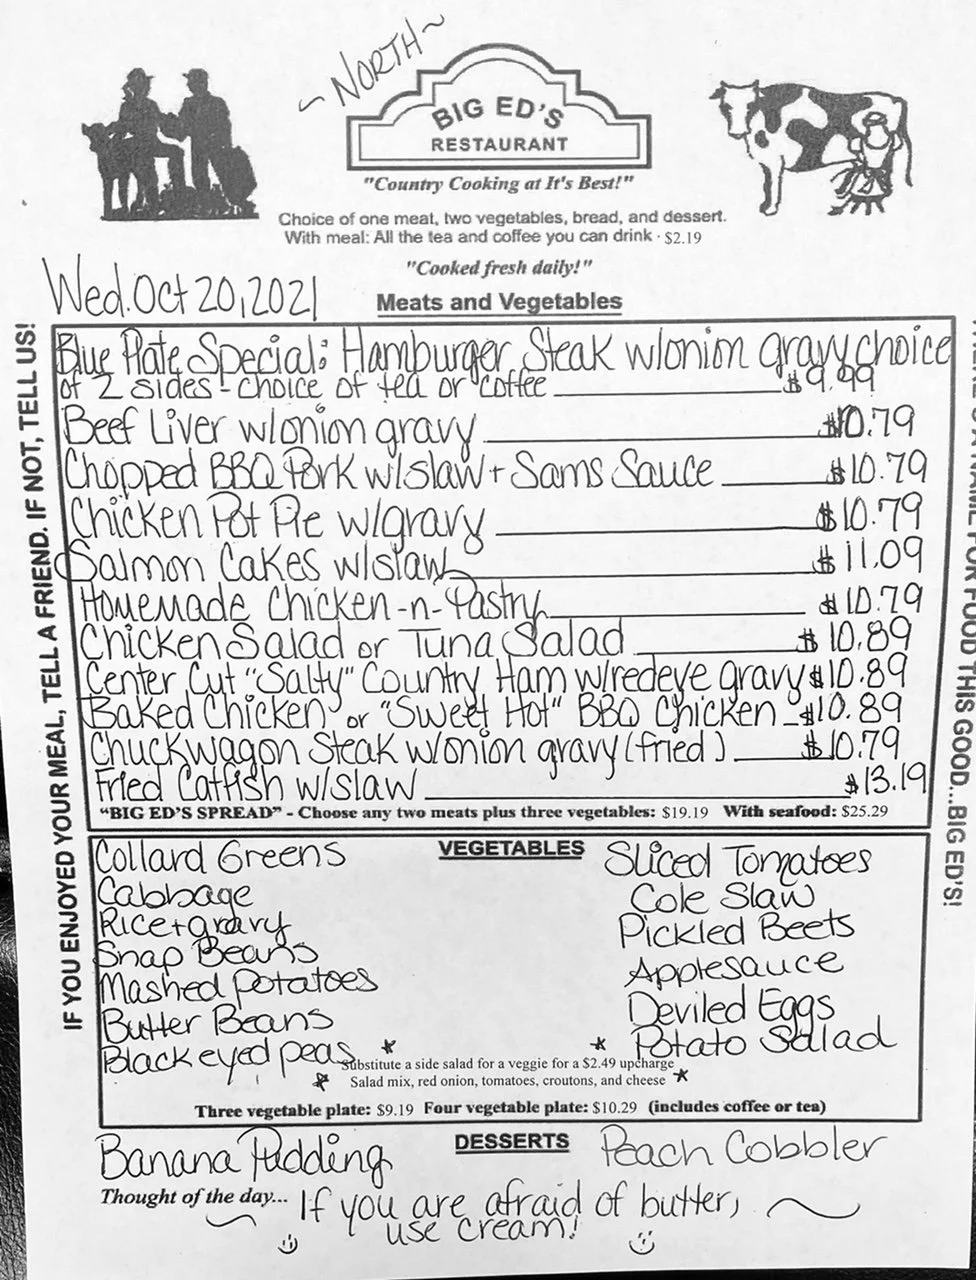 ~ NORTH ~
BIG ED'S
RESTAURANT
"Country Cooking at It's Best!"
Choice of one meat, two vegetables, bread, and dessert.
With meal: All the tea and coffee you can drink · $2.19
"Cooked fresh daily!"
Wed. Oct 20, 2021
Meats and Vegetables
Blue Plate Special: Hamburger Steak w/onion gravy choice
of 2 sides - choice of tea or coffee $9.99
Beef Liver w/onion gravy $10.79
Chopped BBQ Pork w/slaw + Sams Sauce $10.79
Chicken Pot Pie w/gravy $10.79
Salmon Cakes w/slaw $11.09
Homemade Chicken-n-Pastry $10.79
Chicken Salad or Tuna Salad $10.89
Center Cut "Salty" Country Ham w/redeye gravy $10.89
Baked Chicken or "Sweet Hot" BBQ Chicken $10.89
Chuckwagon Steak w/onion gravy (fried) $10.79
Fried Catfish w/slaw $13.19
"BIG ED'S SPREAD" - Choose any two meats plus three vegetables: $19.19 With seafood: $25.29
VEGETABLES
Collard Greens
Cabbage
Rice + gravy
Snap Beans
Mashed Potatoes
Butter Beans
Blackeyed peas
Sliced Tomatoes
Cole Slaw
Pickled Beets
Applesauce
Deviled Eggs
Potato Salad
Substitute a side salad for a veggie for a $2.49 upcharge
Salad mix, red onion, tomatoes, croutons, and cheese
Three vegetable plate: $9.19 Four vegetable plate: $10.29 (includes coffee or tea)
DESSERTS
Banana Pudding
Peach Cobbler
Thought of the day... If you are afraid of butter,
use cream!
IF YOU ENJOYED YOUR MEAL, TELL A FRIEND. IF NOT, TELL US!
NAME FOR FOOD THIS GOOD...BIG ED'S!